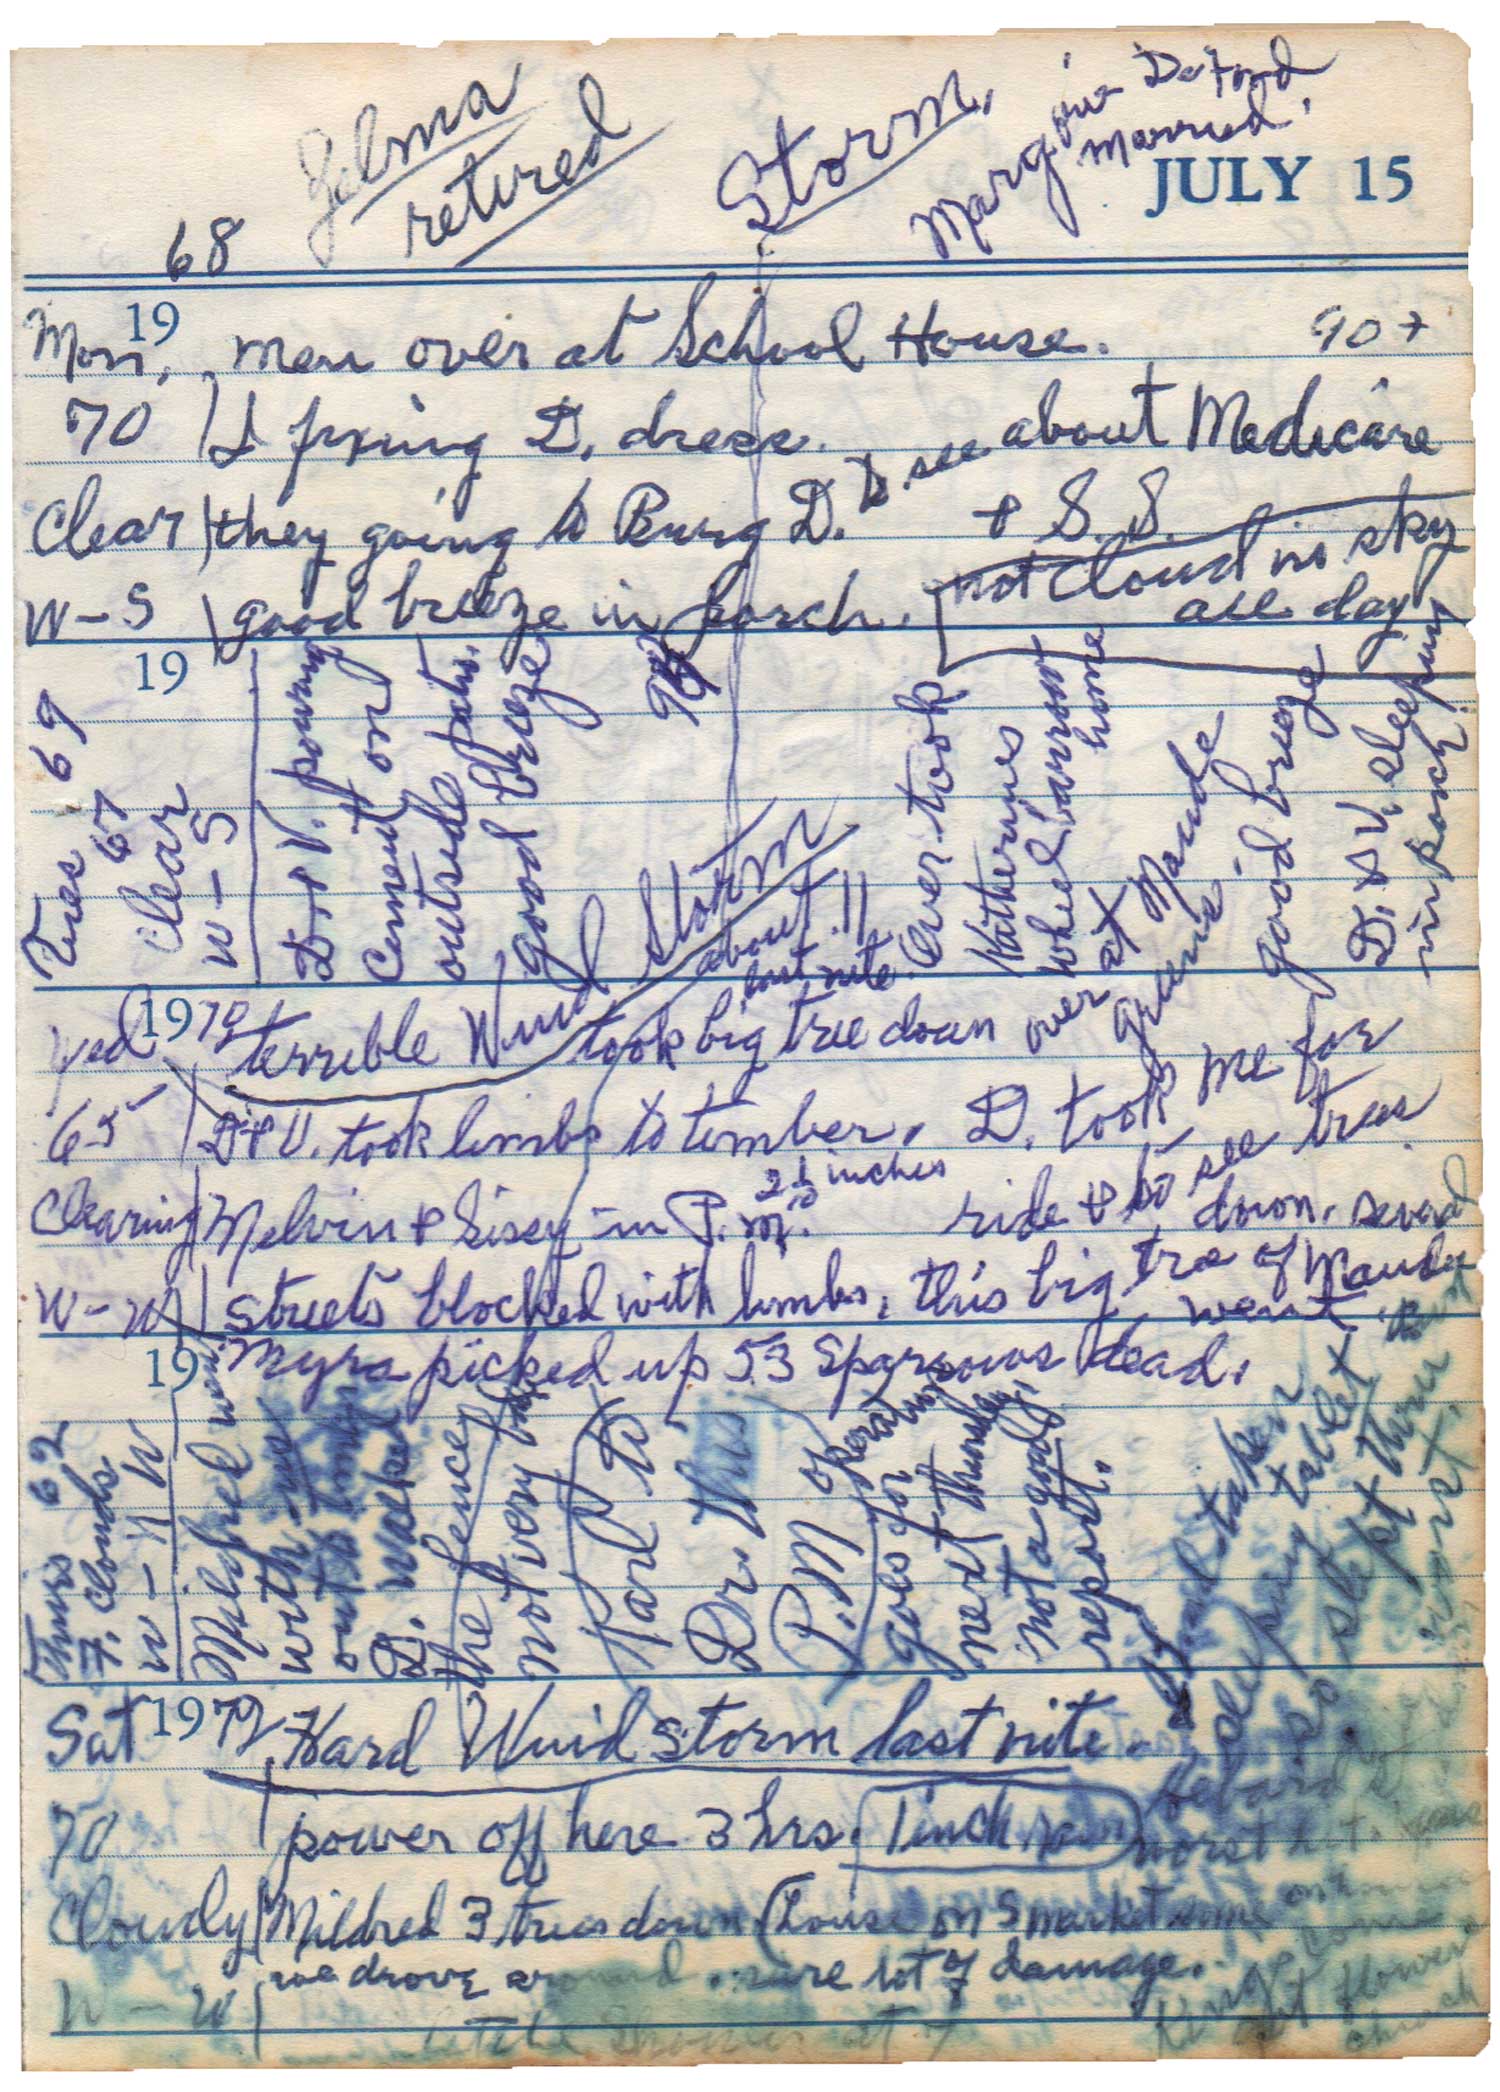 Selma
retired
Storm.
Margorie DeFord
married.
JULY 15
68
19
Mon, men over at School House. 90+
70 I fixing D. dress.
D. see about Medicare
Clear they going to Burg D. + S. S.
W-S good breeze in porch.
not cloud in sky
all day
19
Tues 69
67
Clear
W-S
D + V. pouring
Cement on
outside patio.
good breeze
98
Over took
Katherines
wheel barrow
home
over at Maude
Greens
good breeze
D. + V. sleeping
in porch.
Wed 1970 terrible Wind Storm
about 11
last nite.
took big tree down
65 D + V. took limbs to timber. D. took me for
ride + to see trees
down. several
Clearing Melvin + Sissy in P.M. 2 1/2 inches
W-W streets blocked with limbs. this big tree of Maudes
went
19 Myra picked up 53 Sparrows dead.
Thurs 62
F. Clouds
W-N W
Mildred
with me
out
D. walked
the fence
not very
Karl to
Dr. this
P.M
goes for operation
next Thursday.
not a good
report.
taken
tablet
slept thru
worst.
Sat 1972 Hard Wind storm last nite.
70 power off here 3 hrs. 1 inch rain
worst
Cloudy Mildred 3 trees down (house on S market some
we drove around. sure lot of damage.
W-W